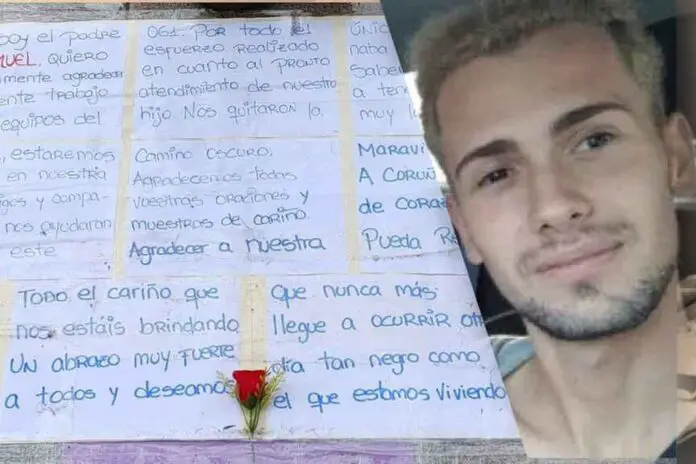 SOY EL PADRE
MUEL, QUIERO
AMENTE AGRADECER
ENTE TRABAJO
EQUIPOS DEL
061. POR TODO EL
ESFUERZO REALIZADO
EN CUANTO AL PRONTO
ATENDIMIENTO DE NUESTRO
HIJO NOS QUITARON LA
ÚNIC
NABA
SABE
A TEN
MUY
ESTAREMOS
EN NUESTRA
IGOS Y COMPA-
NOS AYUDARAN
ESTE
CAMINO OSCURO.
AGRADECEMOS TODAS
VUESTRAS ORACIONES Y
MUESTROS DE CARIÑO.
AGRADECER A NUESTRA
MARAVI
A CORUÑ
DE CORAZ
PUEDA RE
TODO EL CARIÑO QUE
NOS ESTÁIS BRINDANDO
UN ABRAZO MUY FUERTE
A TODOS Y DESEAMOS
QUE NUNCA MÁS
LLEGUE A OCURRIR OT
DÍA TAN NEGRO COMO
EL QUE ESTAMOS VIVIENDO